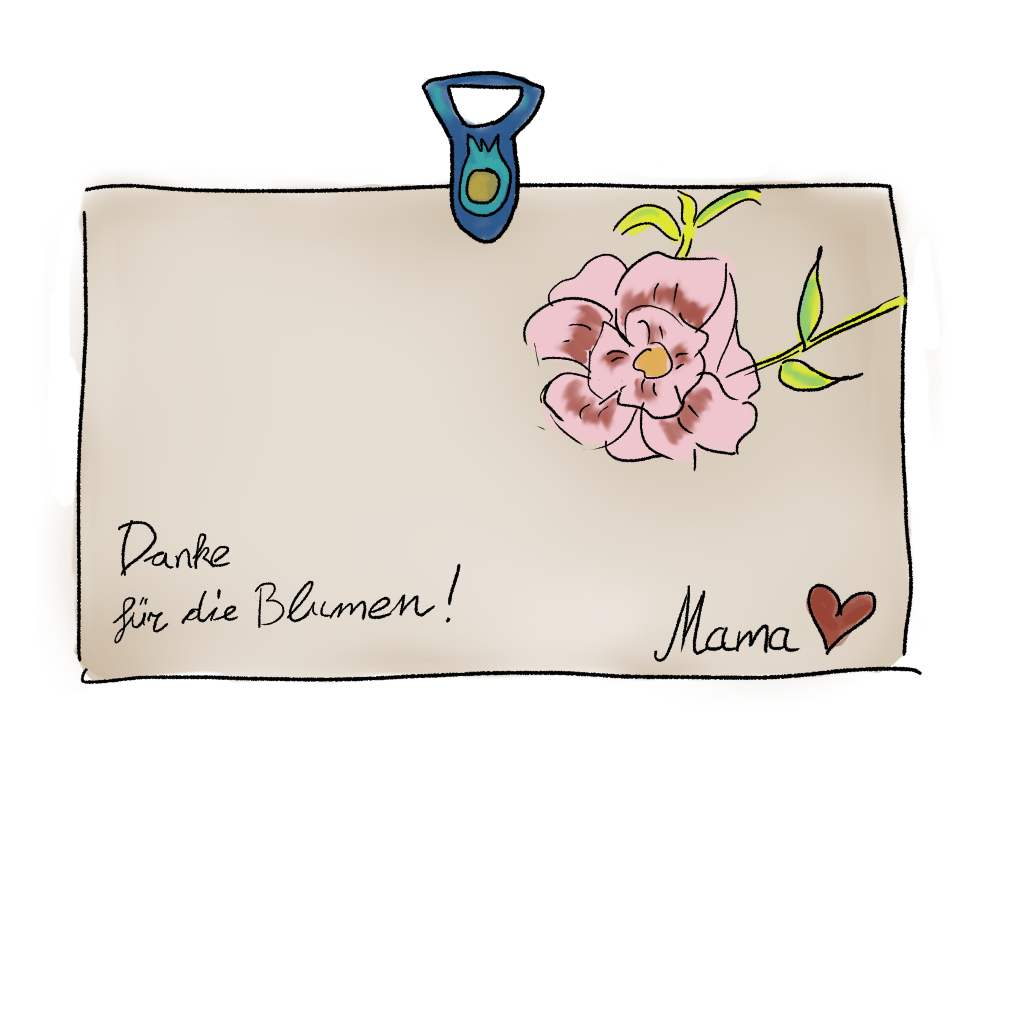 Danke
für die Blumen!
Mama